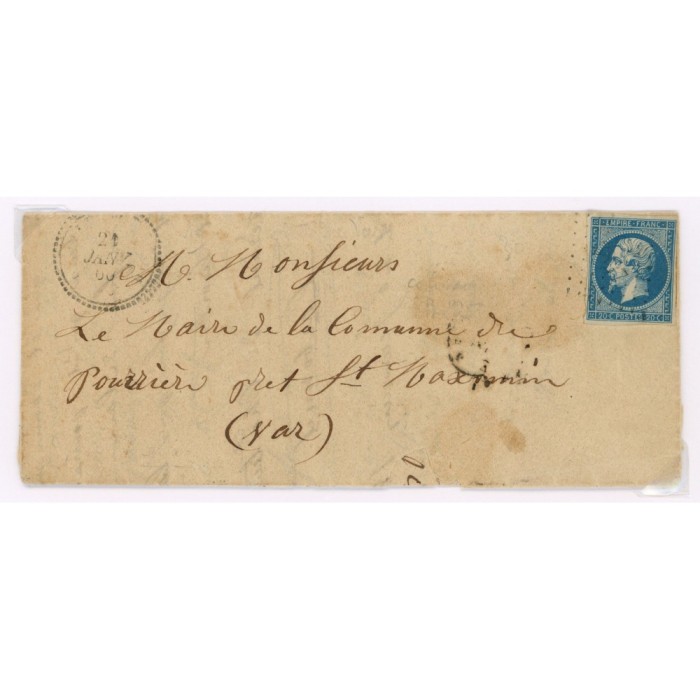 21
JANV
60
EMPIRE FRANC
20 C POSTES 20 C
M. Monsieurs
Le Maire de la Comunne de
Pourrière pret St Maximin
(Var)